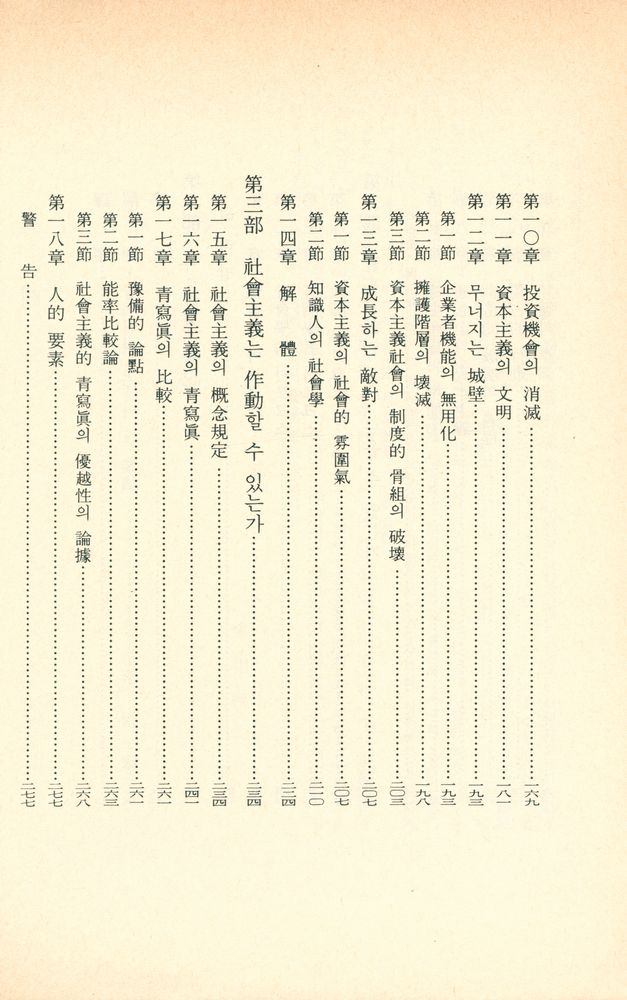 第一〇章 投資機會의 消滅……一六九
第一一章 資本主義의 文明……一八一
第一二章 무너지는 城壁……一九三
第一節 企業者機能의 無用化……一九三
第二節 擁護階層의 壞滅……一九八
第三節 資本主義社會의 制度的 骨組의 破壞……二〇三
第一三章 成長하는 敵對……二〇七
第一節 資本主義의 社會的 雰圍氣……二〇七
第二節 知識人의 社會學……二一〇
第一四章 解體……二二四
第三部 社會主義는 作動할 수 있는가……二三四
第一五章 社會主義의 概念規定……二三四
第一六章 社會主義의 靑寫眞……二四一
第一七章 靑寫眞의 比較……二六一
第一節 豫備的 論點……二六一
第二節 能率比較論……二六三
第三節 社會主義的 靑寫眞의 優越性의 論據……二六八
第一八章 人的 要素……二七七
警告……二七七